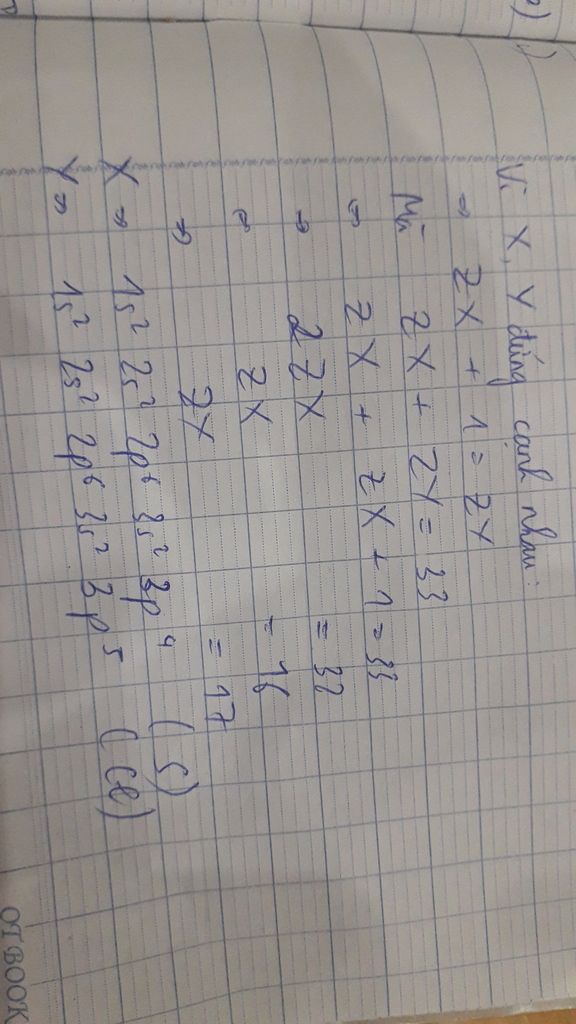 Vì X, Y đứng cạnh nhau:
⇒ ZX + 1 = ZY
Mà ZX + ZY = 33
⇒ ZX + ZX + 1 = 33
⇒ 2ZX = 32
⇒ ZX = 16
⇒ ZY = 17
X ⇒ 1s² 2s² 2p⁶ 3s² 3p⁴ (S)
Y ⇒ 1s² 2s² 2p⁶ 3s² 3p⁵ (Cl)
OTBOOK